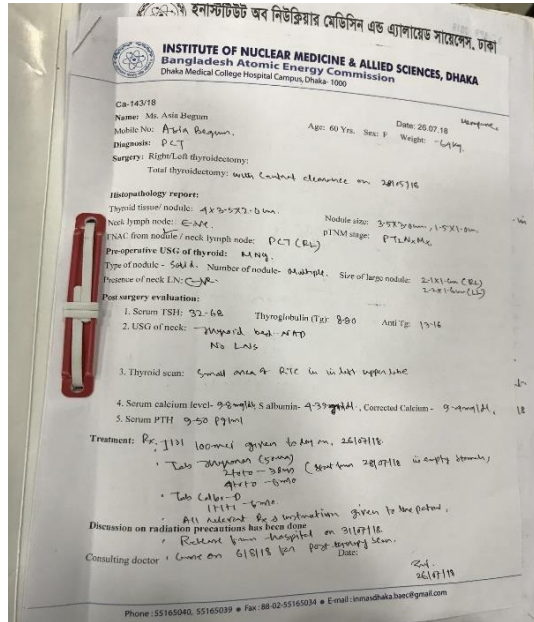 ইনস্টিটিউট অব নিউক্লিয়ার মেডিসিন এন্ড এ্যালায়েড সায়েন্সেস, ঢাকা
INSTITUTE OF NUCLEAR MEDICINE & ALLIED SCIENCES, DHAKA
Bangladesh Atomic Energy Commission
Dhaka Medical College Hospital Campus, Dhaka- 1000
Ca-143/18
Name: Ms. Asia Begum Age: 60 Yrs. Sex: F Date: 26.07.18
Mobile No: Asia Begum. Weight: -64kg.
Diagnosis: PCT
Surgery: Right/Left thyroidectomy:
Total thyroidectomy: with Central clearance on 28/05/18
Histopathology report:
Thyroid tissue/ nodule: 4X3.5X2.0cm. Nodule size: 3.5X3.0cm, 1.5X1.0cm
Neck lymph node: pTNM stage: PT2NxMx
FNAC from nodule / neck lymph node: PCT (RL)
Pre-operative USG of thyroid: MNG.
Type of nodule - Solid. Number of nodule- multiple. Size of large nodule:
Presence of neck LN:
Post surgery evaluation:
1. Serum TSH: 32-68 Thyroglobulin (Tg): 8-80 Anti Tg: 13-16
2. USG of neck: - Thyroid bed - NAD
No LNs
3. Thyroid scan: Small area of RTC in left upper lobe
4. Serum calcium level- 9-8mg/dl, S albumin- 4-39 Corrected Calcium - 9-4mg/dl,
5. Serum PTH 9-50 pg/ml
Treatment: Rx. I131 100mci given today on, 26/07/18.
Tab Thyronor (50mg)
(Start from 28/07/18 in empty stomach)
Tab Calbo-D
1+1+1 -
All relevant Rx & instruction given to the patient.
Discussion on radiation precautions has been done
Release from hospital on 31/07/18.
Consulting doctor Come on 6/8/18 for post therapy scan. Date:
26/07/18
Phone : 55165040, 55165039 ● Fax : 88-02-55165034 ● E-mail : inmasdhaka.baec@gmail.com